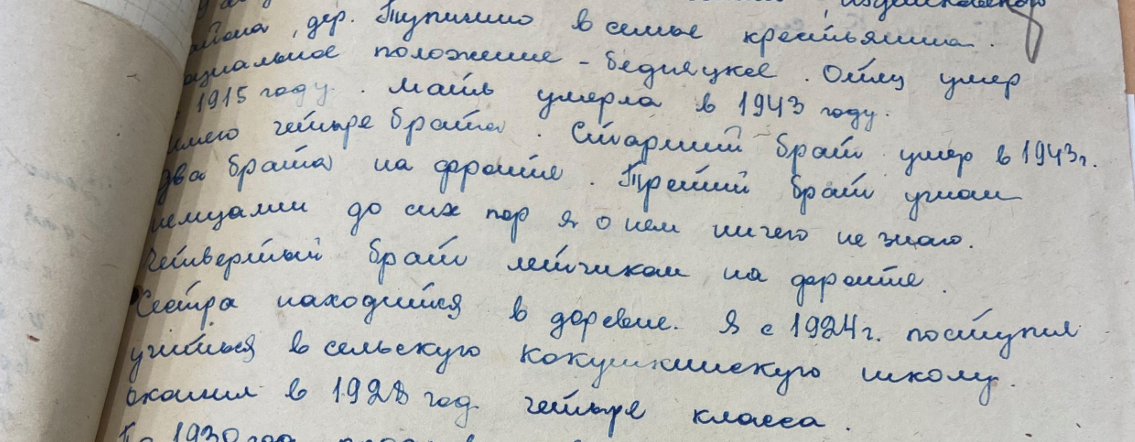 района дер. Тупичино в семье крестьянина.
социальное положение - бедняцкое. Отец умер
1915 году. Мать умерла в 1943 году.
имею четыре брата. Старший брат умер в 1943г.
два брата на фронте. Третий брат угнан
немцами до сих пор я о нем ничего не знаю.
Четвертый брат летчиком на фронте.
Сестра находится в деревне. Я с 1924г. поступил
учиться в сельскую Кокушкинскую школу.
окончил в 1928 год четыре класса.
1930 год